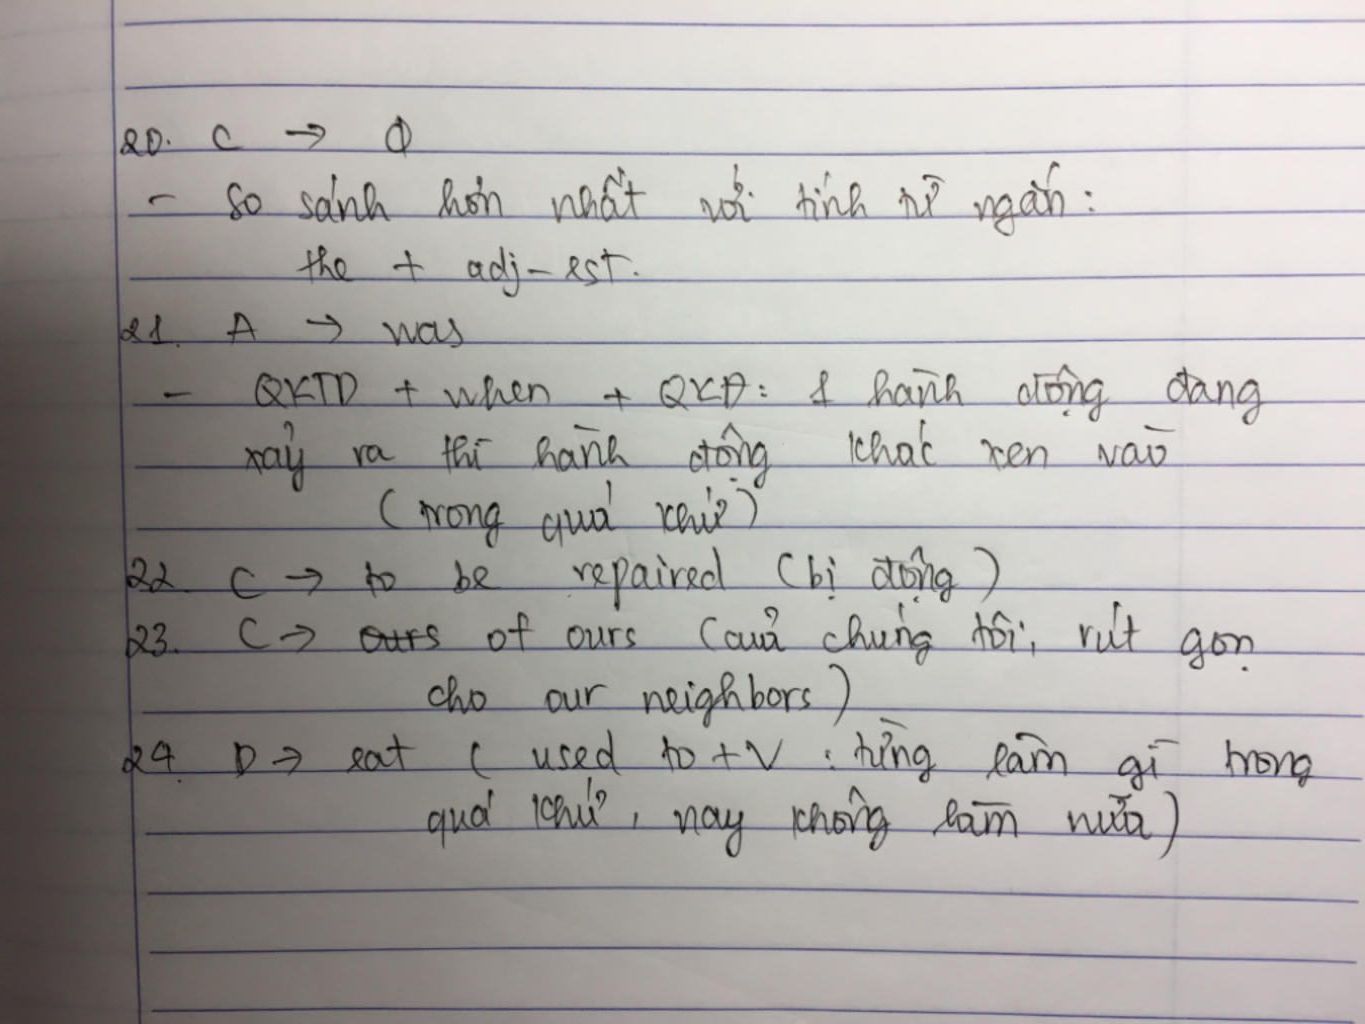 20. C → Φ
- So sánh hơn nhất với tính từ ngắn:
the + adj-est.
21. A → was
- QKTD + when + QKĐ: 1 hành động đang
xảy ra thì hành động khác xen vào
(trong quá khứ)
22. C → to be repaired (bị động)
23. C → ours of ours (của chúng tôi, rút gọn
cho our neighbors)
24. D → eat ( used to + V : từng làm gì trong
quá khứ, nay không làm nữa)